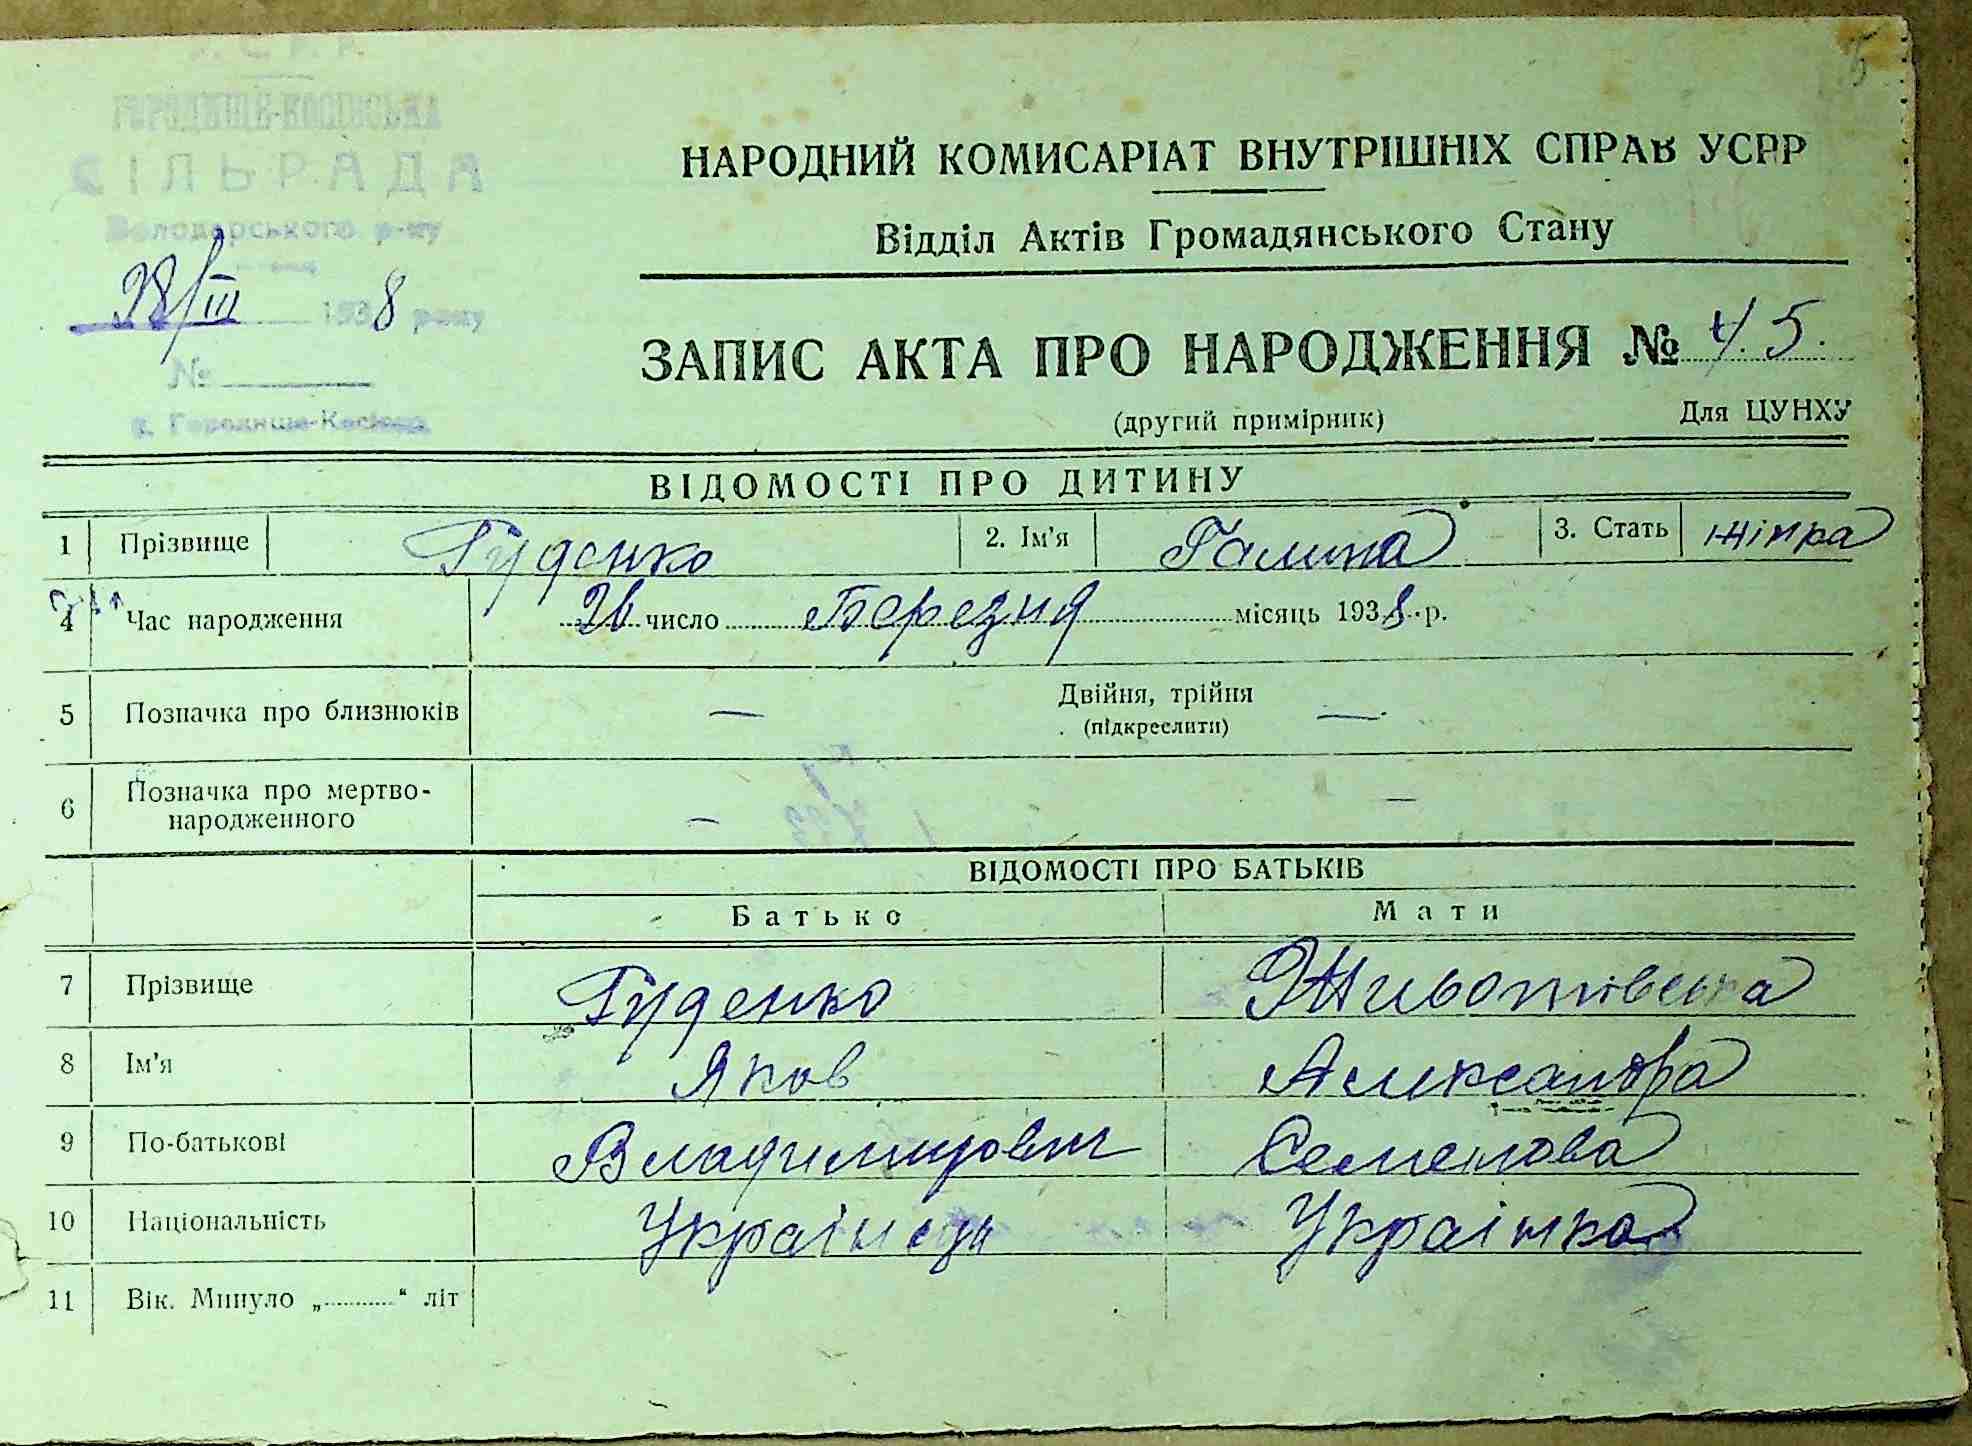 У. С. Р. Р.
ГОРОДИЩЕ-КОСІВСЬКА
СІЛЬРАДА
Володарського р-ну
28/III 1938 року
№
с. Городище-Косівка
5
НАРОДНИЙ КОМИСАРІАТ ВНУТРІШНІХ СПРАВ УСРР
Відділ Актів Громадянського Стану
ЗАПИС АКТА ПРО НАРОДЖЕННЯ № 45.
(другий примірник) Для ЦУНХУ
ВІДОМОСТІ ПРО ДИТИНУ
1 Прізвище Гуденко 2. Ім'я Галина 3. Стать жінка
4 Час народження число Березня місяць 1938 р.
5 Позначка про близнюків — Двійня, трійня —
(підкреслити)
6 Позначка про мертво-
народженного — —
ВІДОМОСТІ ПРО БАТЬКІВ
Батько Мати
7 Прізвище Гуденко Животівська
8 Ім'я Яков Александра
9 По-батькові Владимирович Семенова
10 Національність Українець Українка
11 Вік. Минуло „..........“ літ